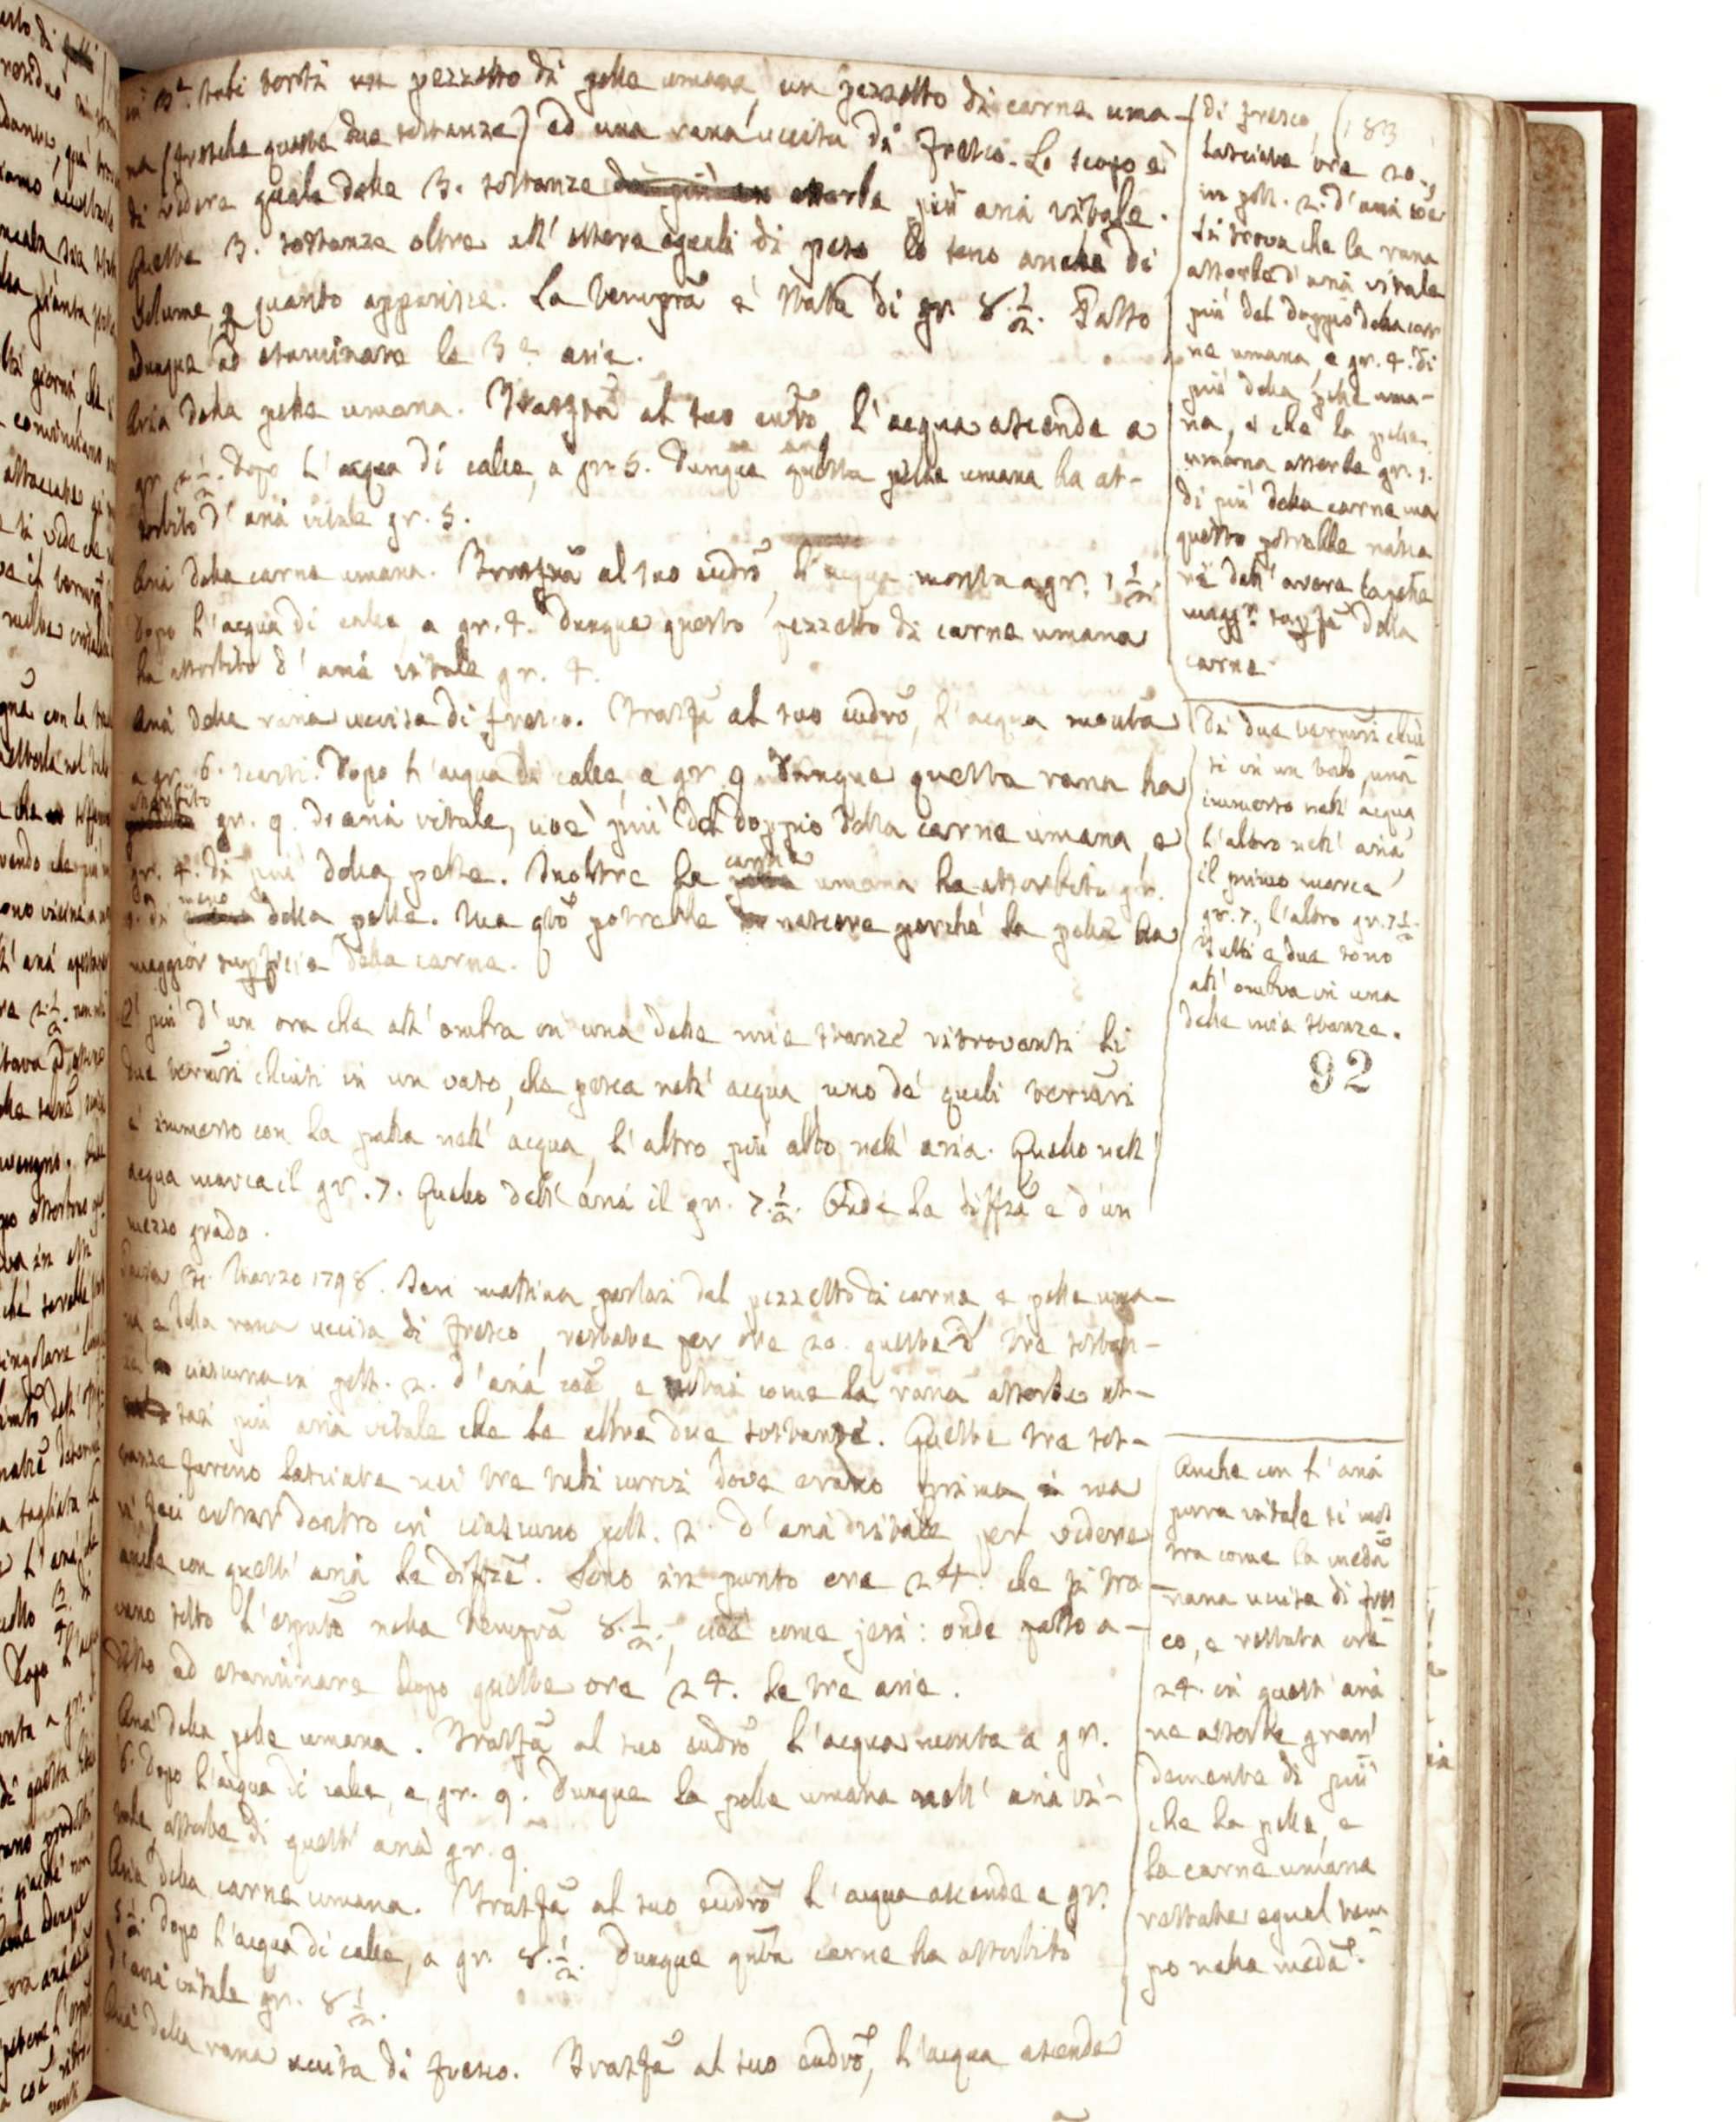 in 3. tubi torti un pezzetto di pelle umana, un pezzetto di carne uma-
na (fresche queste due sostanze) ed una rana uccisa di fresco. Lo scopo è
di vedere quale delle 3. sostanze assorbe più aria vitale.
Queste 3. sostanze oltre all' essere eguali di peso lo sono anche di
volume, quanto apparisce. La temp.ra è stata di gr. 8 1/2. Passo
adunque ad esaminare le 3. arie.
Aria della pelle umana. al suo eudro, l'acqua ascende a
gr. 2 1/2. Dopo l'acqua di calce, a gr. 5. Dunque questa pelle umana ha as-
sorbito d' aria vitale gr. 5.
Aria della carne umana. al suo eudro, l'acqua monta a gr. 1 1/2.
Dopo l'acqua di calce a gr. 4. Dunque questo pezzetto di carne umana
ha assorbito d' aria vitale gr. 4.
Aria della rana uccisa di fresco. al suo eudro, l'acqua monta
a gr. 6. scarsi. Dopo l'acqua di calce a gr. 9. Dunque questa rana ha
assorbito gr. 9. di aria vitale, cioè più del doppio della carne umana, e
gr. 4. di più della pelle. Inoltre la carne umana ha assorbito gr.
1. di meno della pelle. Ma qto potrebbe nascere perchè la pelle ha
maggior superficie della carne.
È più d' un ora che all' ombra in una delle mie stanze ritrovansi li
due termri chiusi in un vaso, che pesca nell' acqua, uno de' quali termri
è immerso con la palla nell' acqua, l' altro più alto, nell' aria. Quello nell'
acqua marca il gr. 7. Quello dell' aria il gr. 7 1/2. Onde la diffza è d' un
mezzo grado.
31. Marzo 1798. Ieri mattina parlai del pezzetto di carne, e pelle uma-
na e della rana uccisa di fresco, restate per ore 20. queste tre sostan-
ze ciascuna in poll. 2. d' aria coe, e come la rana assorbe as-
sai più aria vitale che le altre due sostanze. Queste tre sos-
tanze furono lasciate nei tre tubi curvi dove erano prima, ma
vi feci entrar dentro in ciascuno poll. 2. d' aria vitale, per vedere
anche con quest' aria la diffza. Sono in punto ore 24. che si tro-
vano sotto l' esperto nella temp.ra 8 1/2, cioè come jeri: onde passo a-
desso ad esaminare dopo queste ore 24. le tre arie.
Aria della pelle umana. al suo eudro, l'acqua monta a gr.
6. Dopo l'acqua di calce, a gr. 9. Dunque la pelle umana nell' aria vi-
tale assorbe di quest' aria gr. 9.
Aria della carne umana. al suo eudro l' acqua ascende a gr.
5 1/2. Dopo l'acqua di calce, a gr. 8 1/2. Dunque questa carne ha assorbito
d' aria vitale gr. 8 1/2.
Aria della rana uccisa di fresco. al suo eudro, l'acqua ascende
di fresco, (183
lasciate ore 20.,
in poll. 2. d' aria coe
si trova che la rana
assorbe d' aria vitale
più del doppio della car
ne umana, e gr. 4. di
più della pelle uma-
na, e che la pelle
umana assorbe gr. 1.
di più della carne ma
questo potrebbe nasce
re dall' avere la pelle
magg.r della
carne.
Di due termri chiu
si in un vaso, uno
immerso nell' acqua,
l' altro nell' aria,
il primo marca
gr. 7., l' altro gr. 7 1/2.
Tutti e due sono
all' ombra in una
delle mie stanze.
92
Anche con l' aria
pura vitale si mos
tra come la meda
rana uccisa di fres
co, e restata ore
24. in quest' aria
ne assorbe gran
demente di più
che la pelle, e
la carne umana
restate egual tem
po nella meda.